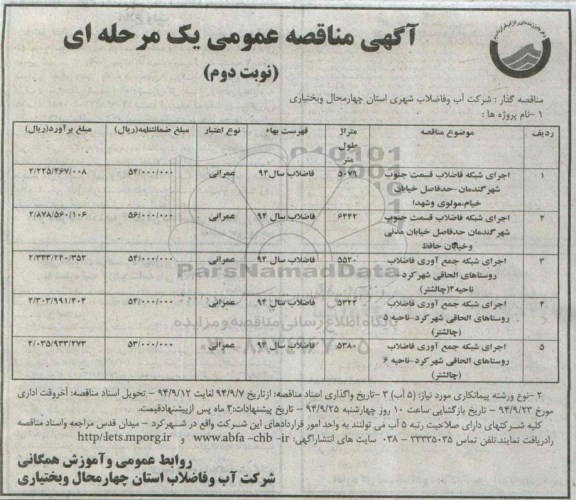 آگهی مناقصه عمومی یک مرحله ای
(نوبت دوم)
مناقصه گذار : شرکت آب وفاضلاب شهری استان چهارمحال وبختیاری
۱-نام پروژه ها :
ردیف موضوع مناقصه متراژ طول متر فهرست بهاء نوع اعتبار مبلغ ضمانتنامه(ریال) مبلغ برآورد(ریال)
۱ اجرای شبکه فاضلاب قسمت جنوب شهرگندمان-حدفاصل خیابان خیام،مولوی وشهدا ۵۰۷۹ فاضلاب سال۹۴ عمرانی ۵۴/۰۰۰/۰۰۰ ۲/۲۲۵/۴۶۷/۰۰۸
۲ اجرای شبکه فاضلاب قسمت جنوب شهرگندمان حدفاصل خیابان مدنی وخیابان حافظ ۶۴۴۲ فاضلاب سال۹۴ عمرانی ۵۶/۰۰۰/۰۰۰ ۲/۸۷۸/۵۶۰/۱۰۶
۳ اجرای شبکه جمع آوری فاضلاب روستاهای الحاقی شهرکرد- ناحیه۲(چالشتر) ۵۵۲۰ فاضلاب سال ۹۴ عمرانی ۵۴/۰۰۰/۰۰۰ ۲/۳۳۳/۲۴۰/۳۵۲
۴ اجرای شبکه جمع آوری فاضلاب روستاهای الحاقی شهرکرد-ناحیه ۵ (چالشتر) ۵۳۲۴ فاضلاب سال ۹۴ عمرانی ۵۴/۰۰۰/۰۰۰ ۲/۳۰۳/۹۹۱/۴۰۴
۵ اجرای شبکه جمع آوری فاضلاب روستاهای الحاقی شهرکرد-ناحیه ۶ (چالشتر) ۵۳۸۰ فاضلاب سال ۹۴ عمرانی ۵۳/۰۰۰/۰۰۰ ۲/۰۳۵/۹۳۳/۲۷۳
ParsNamadData
پایگاه اطلاع رسانی مناقصه و مزایده
۲-نوع ورشته پیمانکاری مورد نیاز: (۵ آب) ۳-تاریخ واگذاری اسناد مناقصه: ازتاریخ ۹۴/۹/۷ لغایت ۹۴/۹/۱۲ - تحویل اسناد مناقصه: آخروقت اداری
مورخ ۹۴/۹/۲۳ - تاریخ بازگشایی ساعت ۱۰ روز چهارشنبه ۹۴/۹/۲۵ - تاریخ پیشنهادات:۳ ماه پس ازپیشنهادقیمت.
کلیه شرکتهای دارای صلاحیت رتبه ۵ آب می توانند به واحد امور قراردادهای این شرکت واقع در شهرکرد - میدان قدس مراجعه واسناد مناقصه
رادریافت نمایند.تلفن تماس ۳۳۳۳۵۰۳۵ - ۰۳۸ سایت های انتشارآگهی: www.abfa-chb-ir و http:iets.mporg.ir
روابط عمومی وآموزش همگانی
شرکت آب وفاضلاب استان چهارمحال وبختیاری